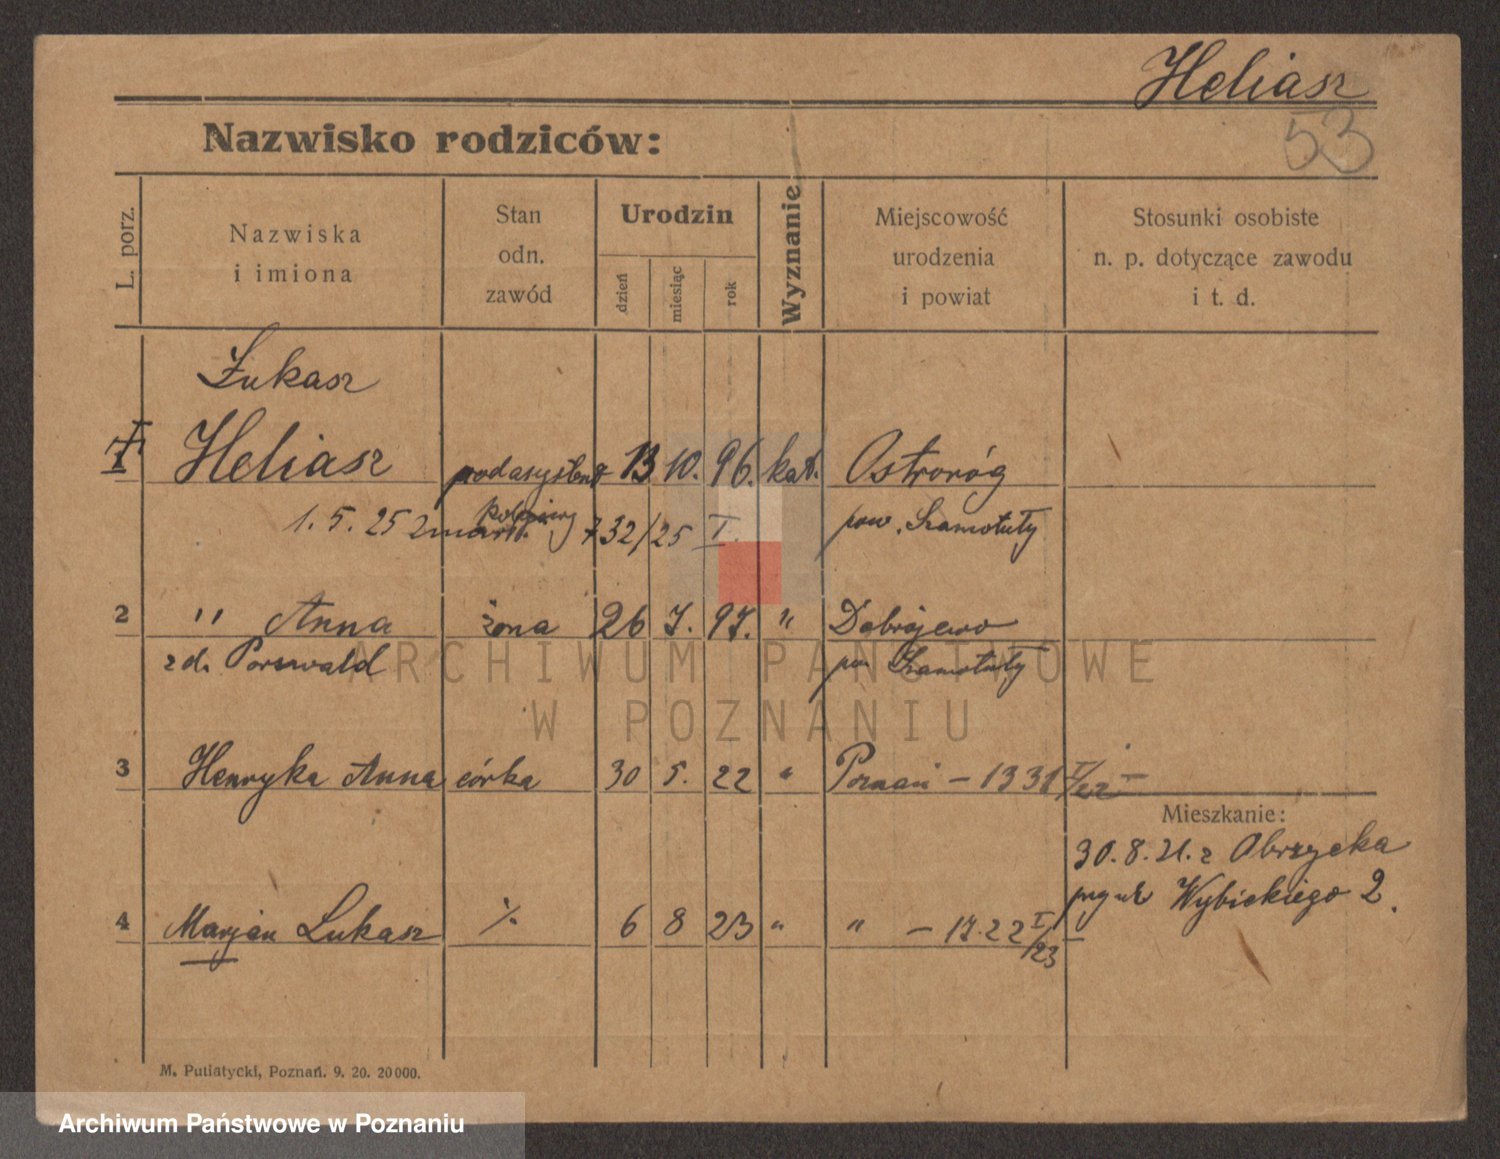 Heliasz
53
Nazwisko rodziców:
L. porz.
Nazwiska
i imiona
Stan
odn.
zawód
Urodzin
dzień
miesiąc
rok
Wyznanie
Miejscowość
urodzenia
i powiat
Stosunki osobiste
n. p. dotyczące zawodu
i t. d.
Łukasz
Heliasz podasystent 13 10. 96. kat. Ostroróg
1. 5. 25 zmarł. 732/25 I. pow. Szamotuły
kolejowy
2 " Anna żona 26 7. 97. " Dobrojewo
z d. Porzwald pow. Szamotuły
3 Henryka Anna córka 30 5. 22 " Poznań – 1331 I/22
Mieszkanie:
30. 8. 21. z Obrzycka
Wybickiego 2.
4 Marjan Łukasz 6 8 23 " " – 1722 I/23
M. Putiatycki, Poznań. 9. 20. 20000.
ARCHIWUM PAŃSTWOWE
W POZNANIU
Archiwum Państwowe w Poznaniu